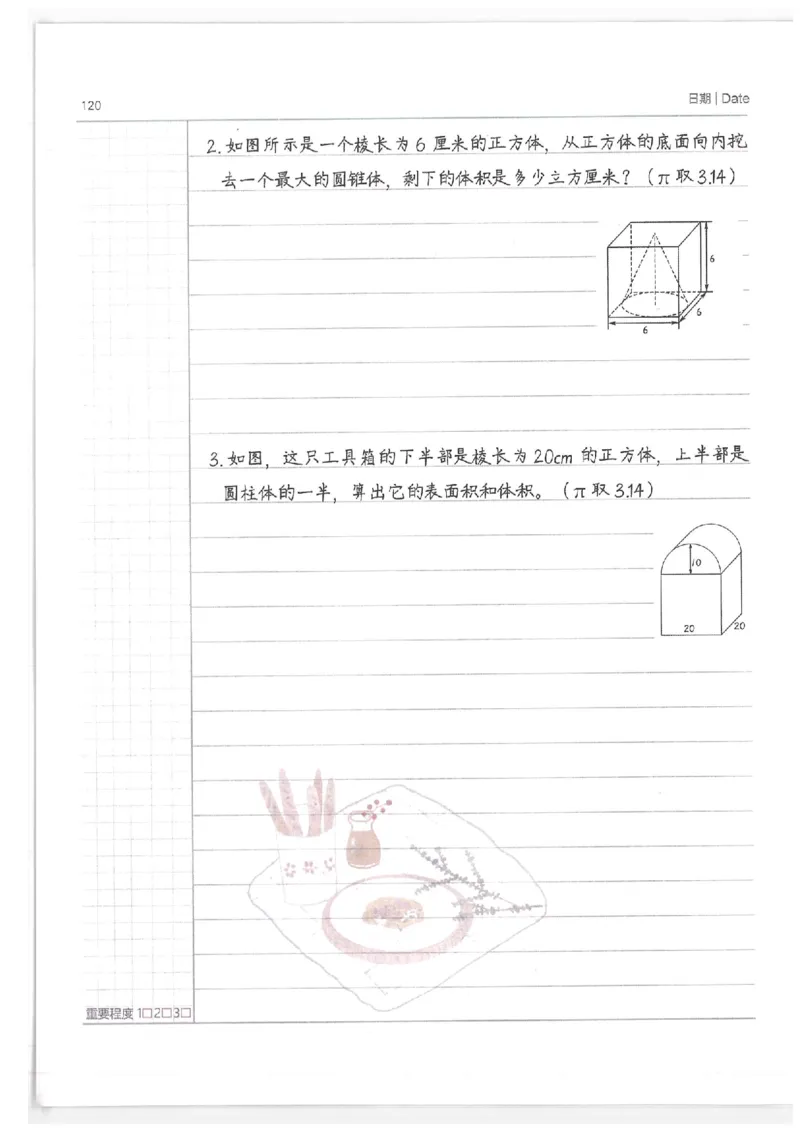 120
日期 | Date
2.如图所示是一个棱长为6厘米的正方体，从正方体的底面向内挖
去一个最大的圆锥体，剩下的体积是多少立方厘米？（π取3.14）
6
6
6
3.如图，这只工具箱的下半部是棱长为20cm的正方体，上半部是
圆柱体的一半，算出它的表面积和体积。（π取3.14）
10
20
20
重要程度 1□2□3□